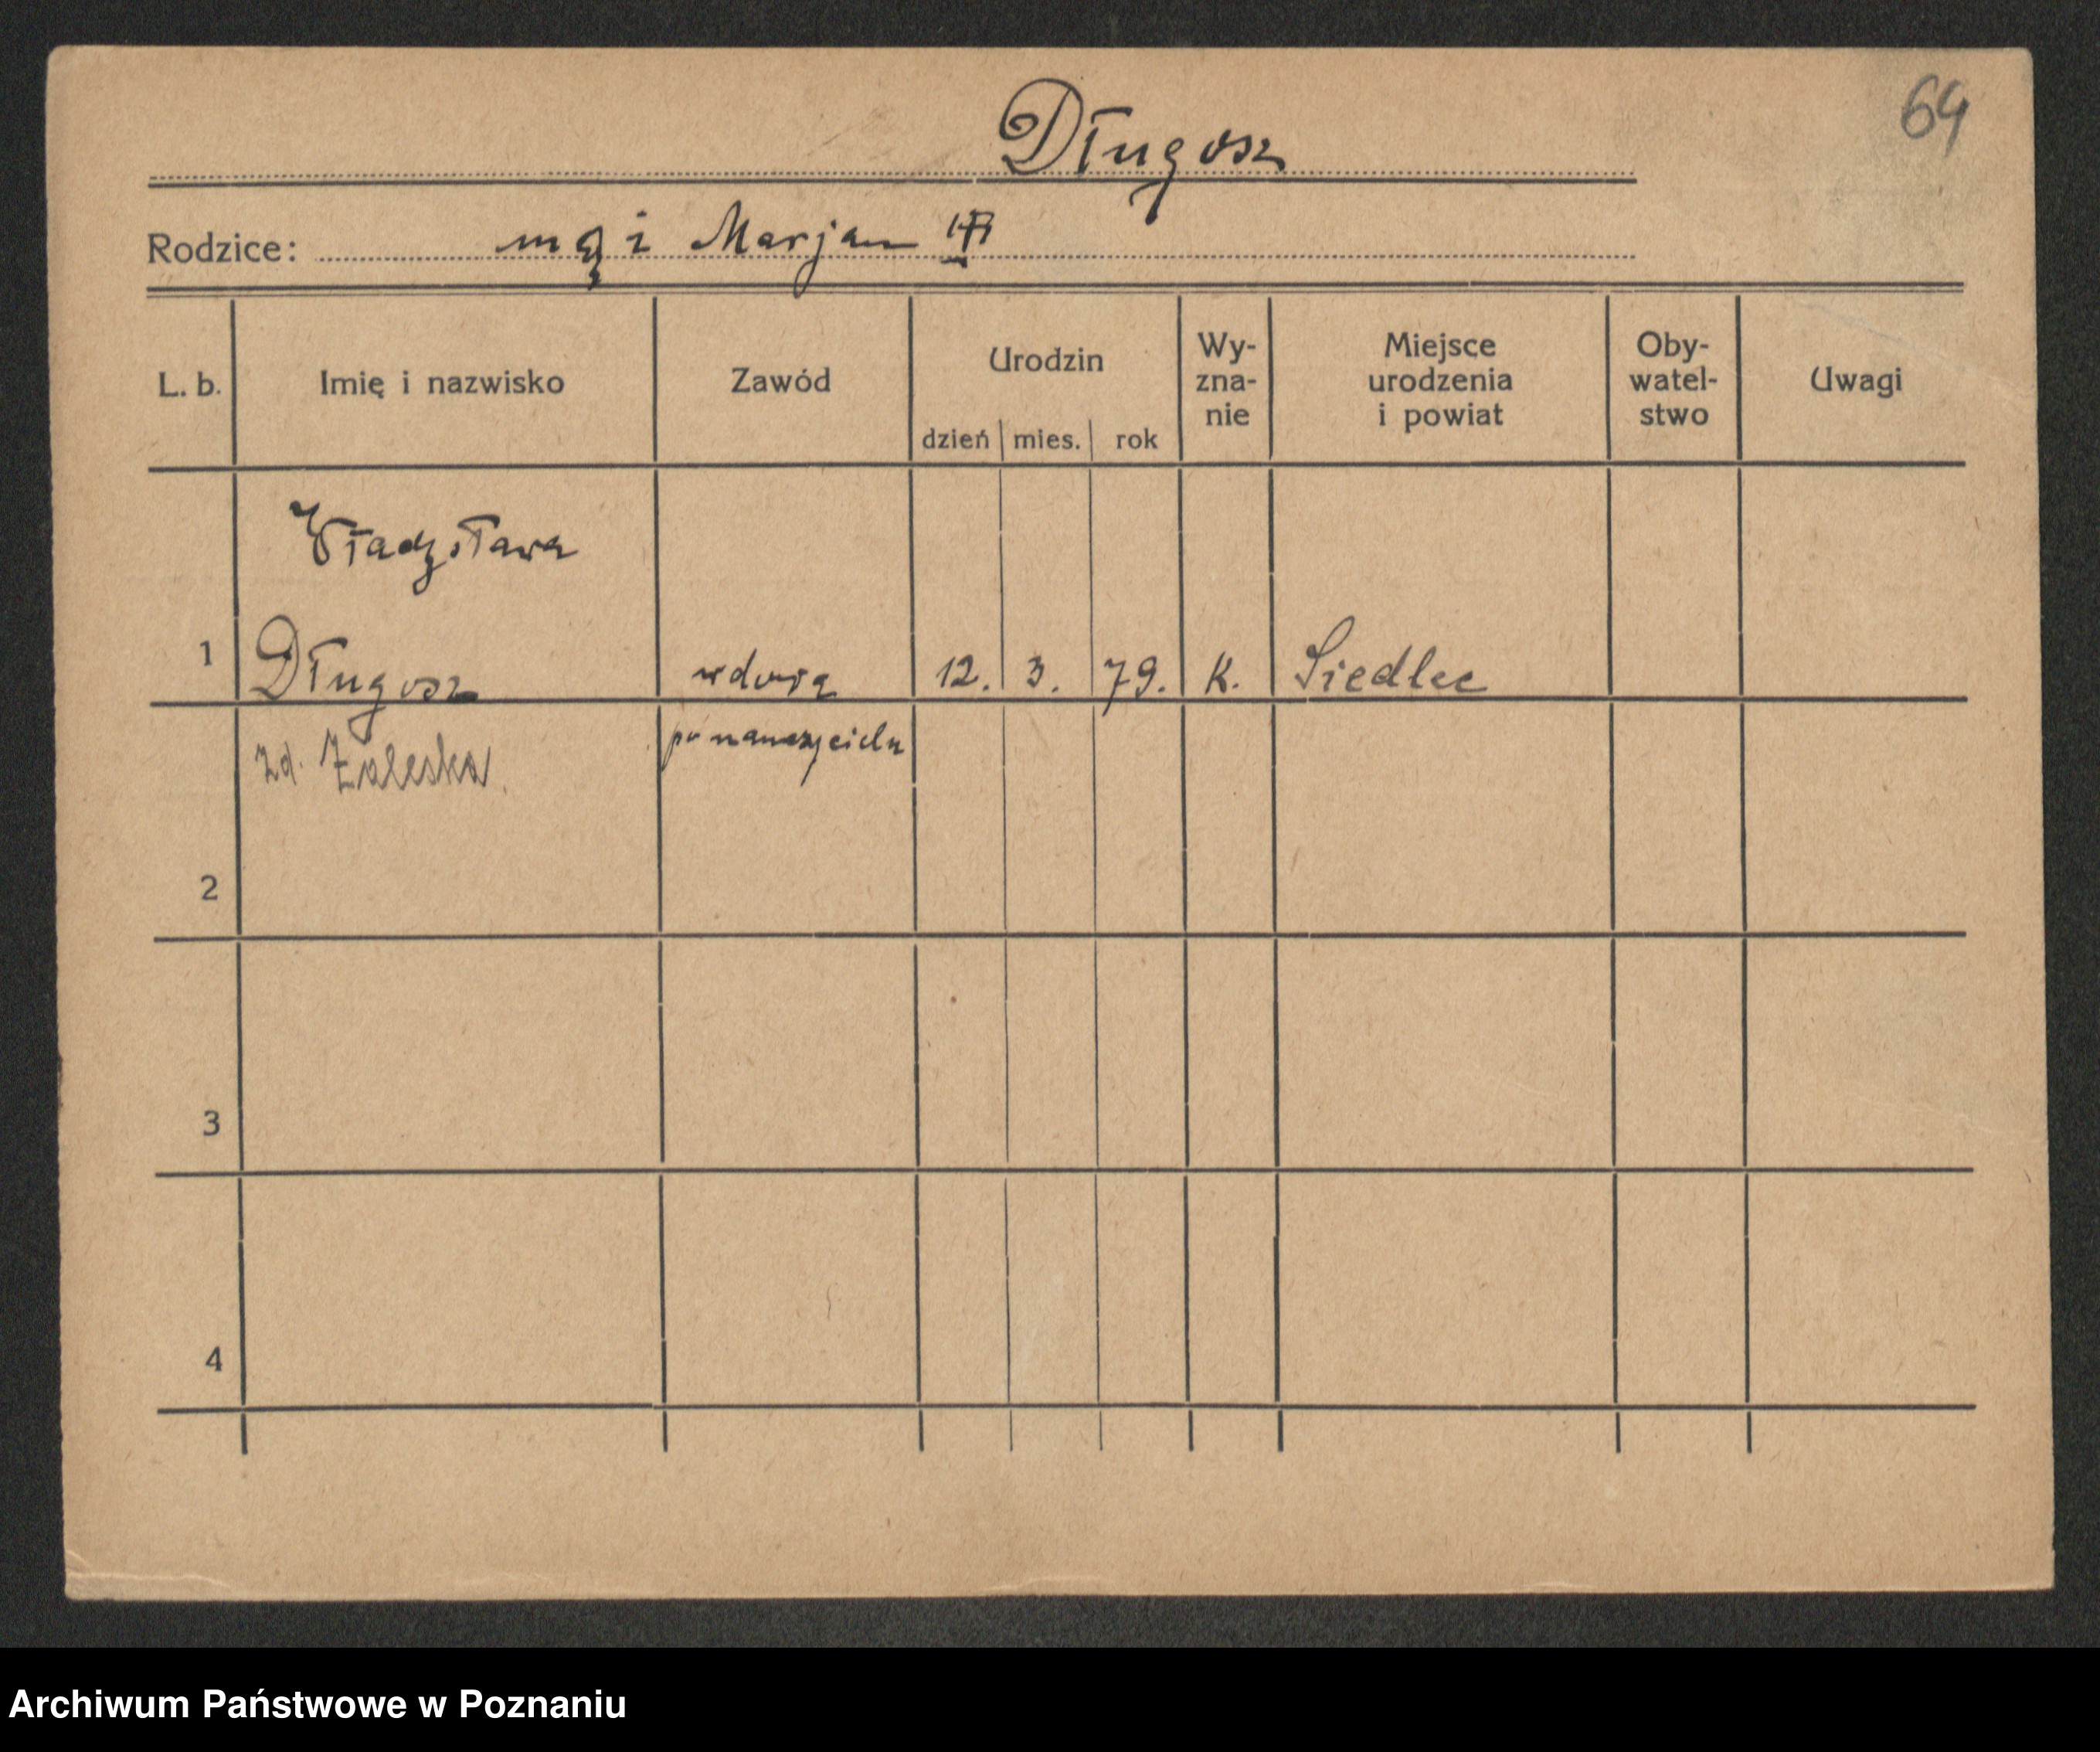 64
Długosz
Rodzice: mąż Marjan
L. b. Imię i nazwisko Zawód Urodzin dzień mies. rok Wy-zna-nie Miejsce urodzenia i powiat Oby-watel-stwo Uwagi
Władysława
1 Długosz wdowa 12. 3. 79. K. Siedlec
zd. Zaleska po nauczycielu
2
3
4
Archiwum Państwowe w Poznaniu